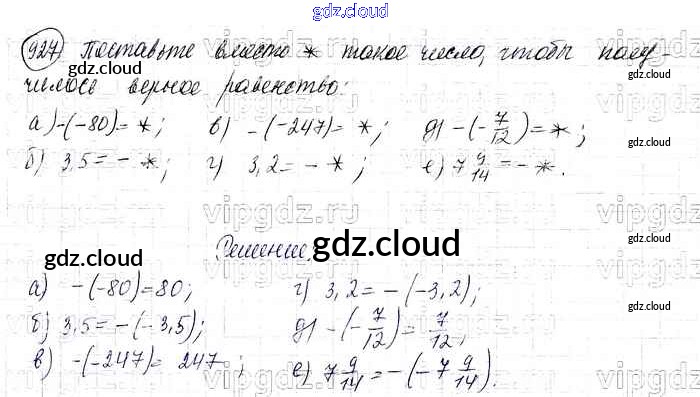 gdz.cloud
927. Поставьте вместо * такое число, чтобы полу-
чилось верное равенство:
а) -(-80) = *; в) -(-247) = *; д) -(-7/12) = *;
б) 3,5 = - *; г) 3,2 = - *; е) 7 9/14 = - *.
Решение.
а) -(-80) = 80; г) 3,2 = -(-3,2);
б) 3,5 = -(-3,5); д) -(-7/12) = 7/12;
в) -(-247) = 247; е) 7 9/14 = -(-7 9/14).
gdz.cloud
gdz.cloud
gdz.cloud
gdz.cloud
gdz.cloud
gdz.cloud
gdz.cloud
vipgdz.ru
vipgdz.ru
vipgdz.ru
vipgdz.ru